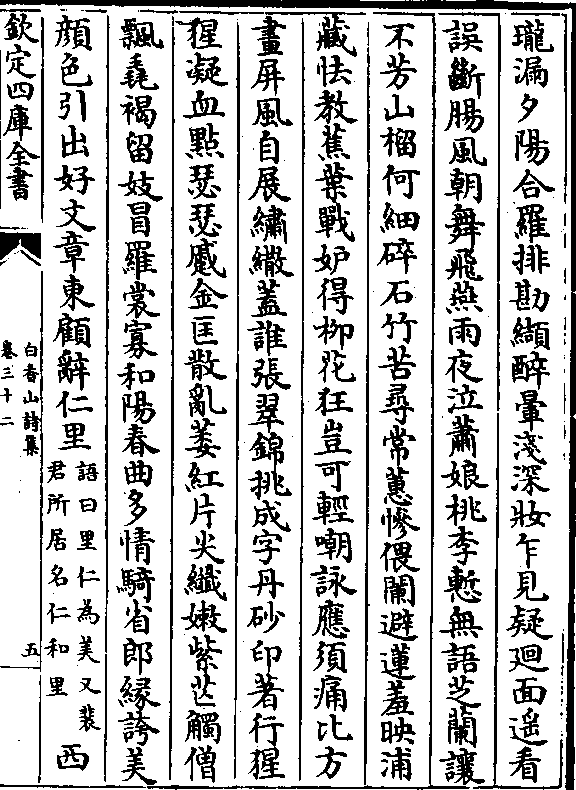 瓏漏夕陽合羅排勘纈醉暈淺深妝乍見疑廻面遙看
誤斷腸風朝舞飛燕雨夜泣蕭娘桃李慙無語芝蘭讓
不芳山榴何細碎石竹苦尋常蕙慘偎闌避蓮羞映浦
藏怯教蕉葉戰妒得柳花狂豈可輕嘲詠應須痛比方
畫屏風自展繡繖蓋誰張翠錦挑成字丹砂印著行猩
猩凝血點瑟瑟蹙金匡散亂萎紅片尖纖嫩紫芒觸僧
飄毳褐留妓冒羅裳寡和陽春曲多情騎省郎緣誇美
顔色引出好文章東顧辭仁里
語曰里仁為美又裴
君所居名仁和里
西
欽定四庫全書
白香山詩集
卷三十二
五